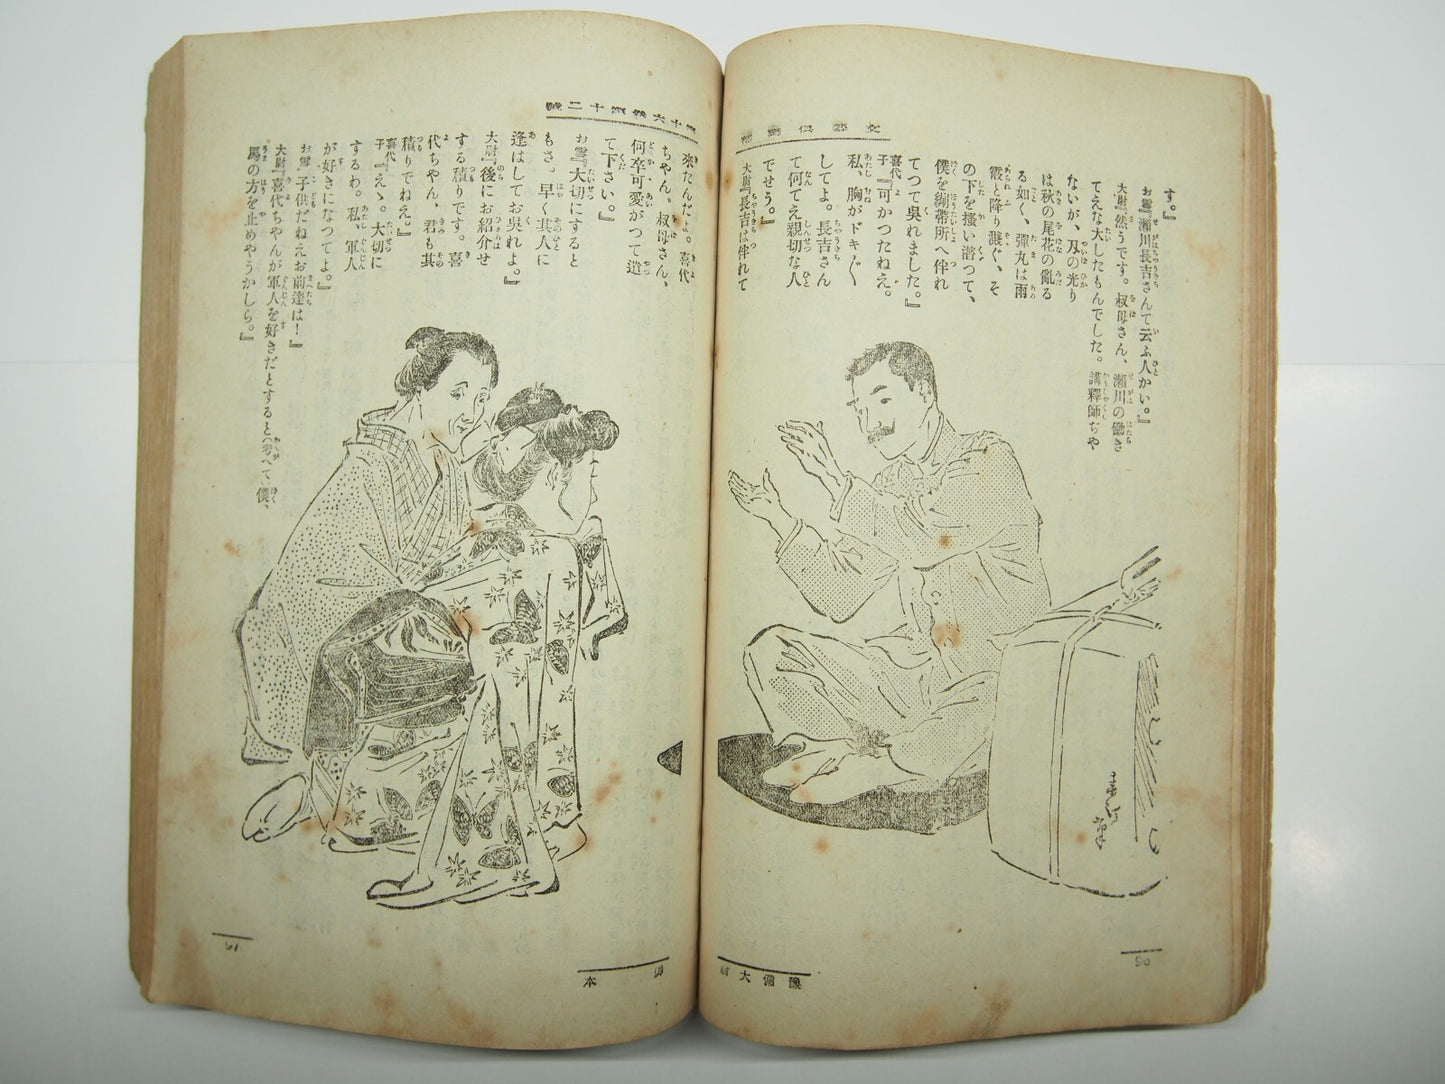 文藝倶樂部
す。』
お雲『瀬川長吉さんて云ふ人かい。』
大尉『然うです。叔母さん、瀬川の働き
てえな大したもんでした。講釋師ぢや
ないが、刄の光り
は秋の尾花の亂る
る如く、彈丸は雨
霰と降り濺ぐ、そ
の下を掻い潜つて、
僕を繃帶所へ伴れ
てつて呉れました。』
喜代
子『可かつたねえ。
私、胸がドキドキ
してよ。長吉さん
て何てえ親切な人
でせう。』
大尉『長吉は伴れて
豫備大尉
50
第十六卷第十二號
來たんだよ。喜代
ちやん、叔母さん、
何卒可愛がつて遣
て下さい。』
お雲『大切にすると
もさ。早く其人に
逢はしてお呉れよ。』
大尉『後にお紹介せ
する積りです。喜
代ちやん、君も其
積りでねえ。』
喜代
子『えゝ。大切に
するわ。私、軍人
が好きになつてよ。』
お雲『子供だねえお前達は！』
大尉『喜代ちやんが軍人を好きだとすると(考へて)僕、
馬の方を止めやうかしら。』
51